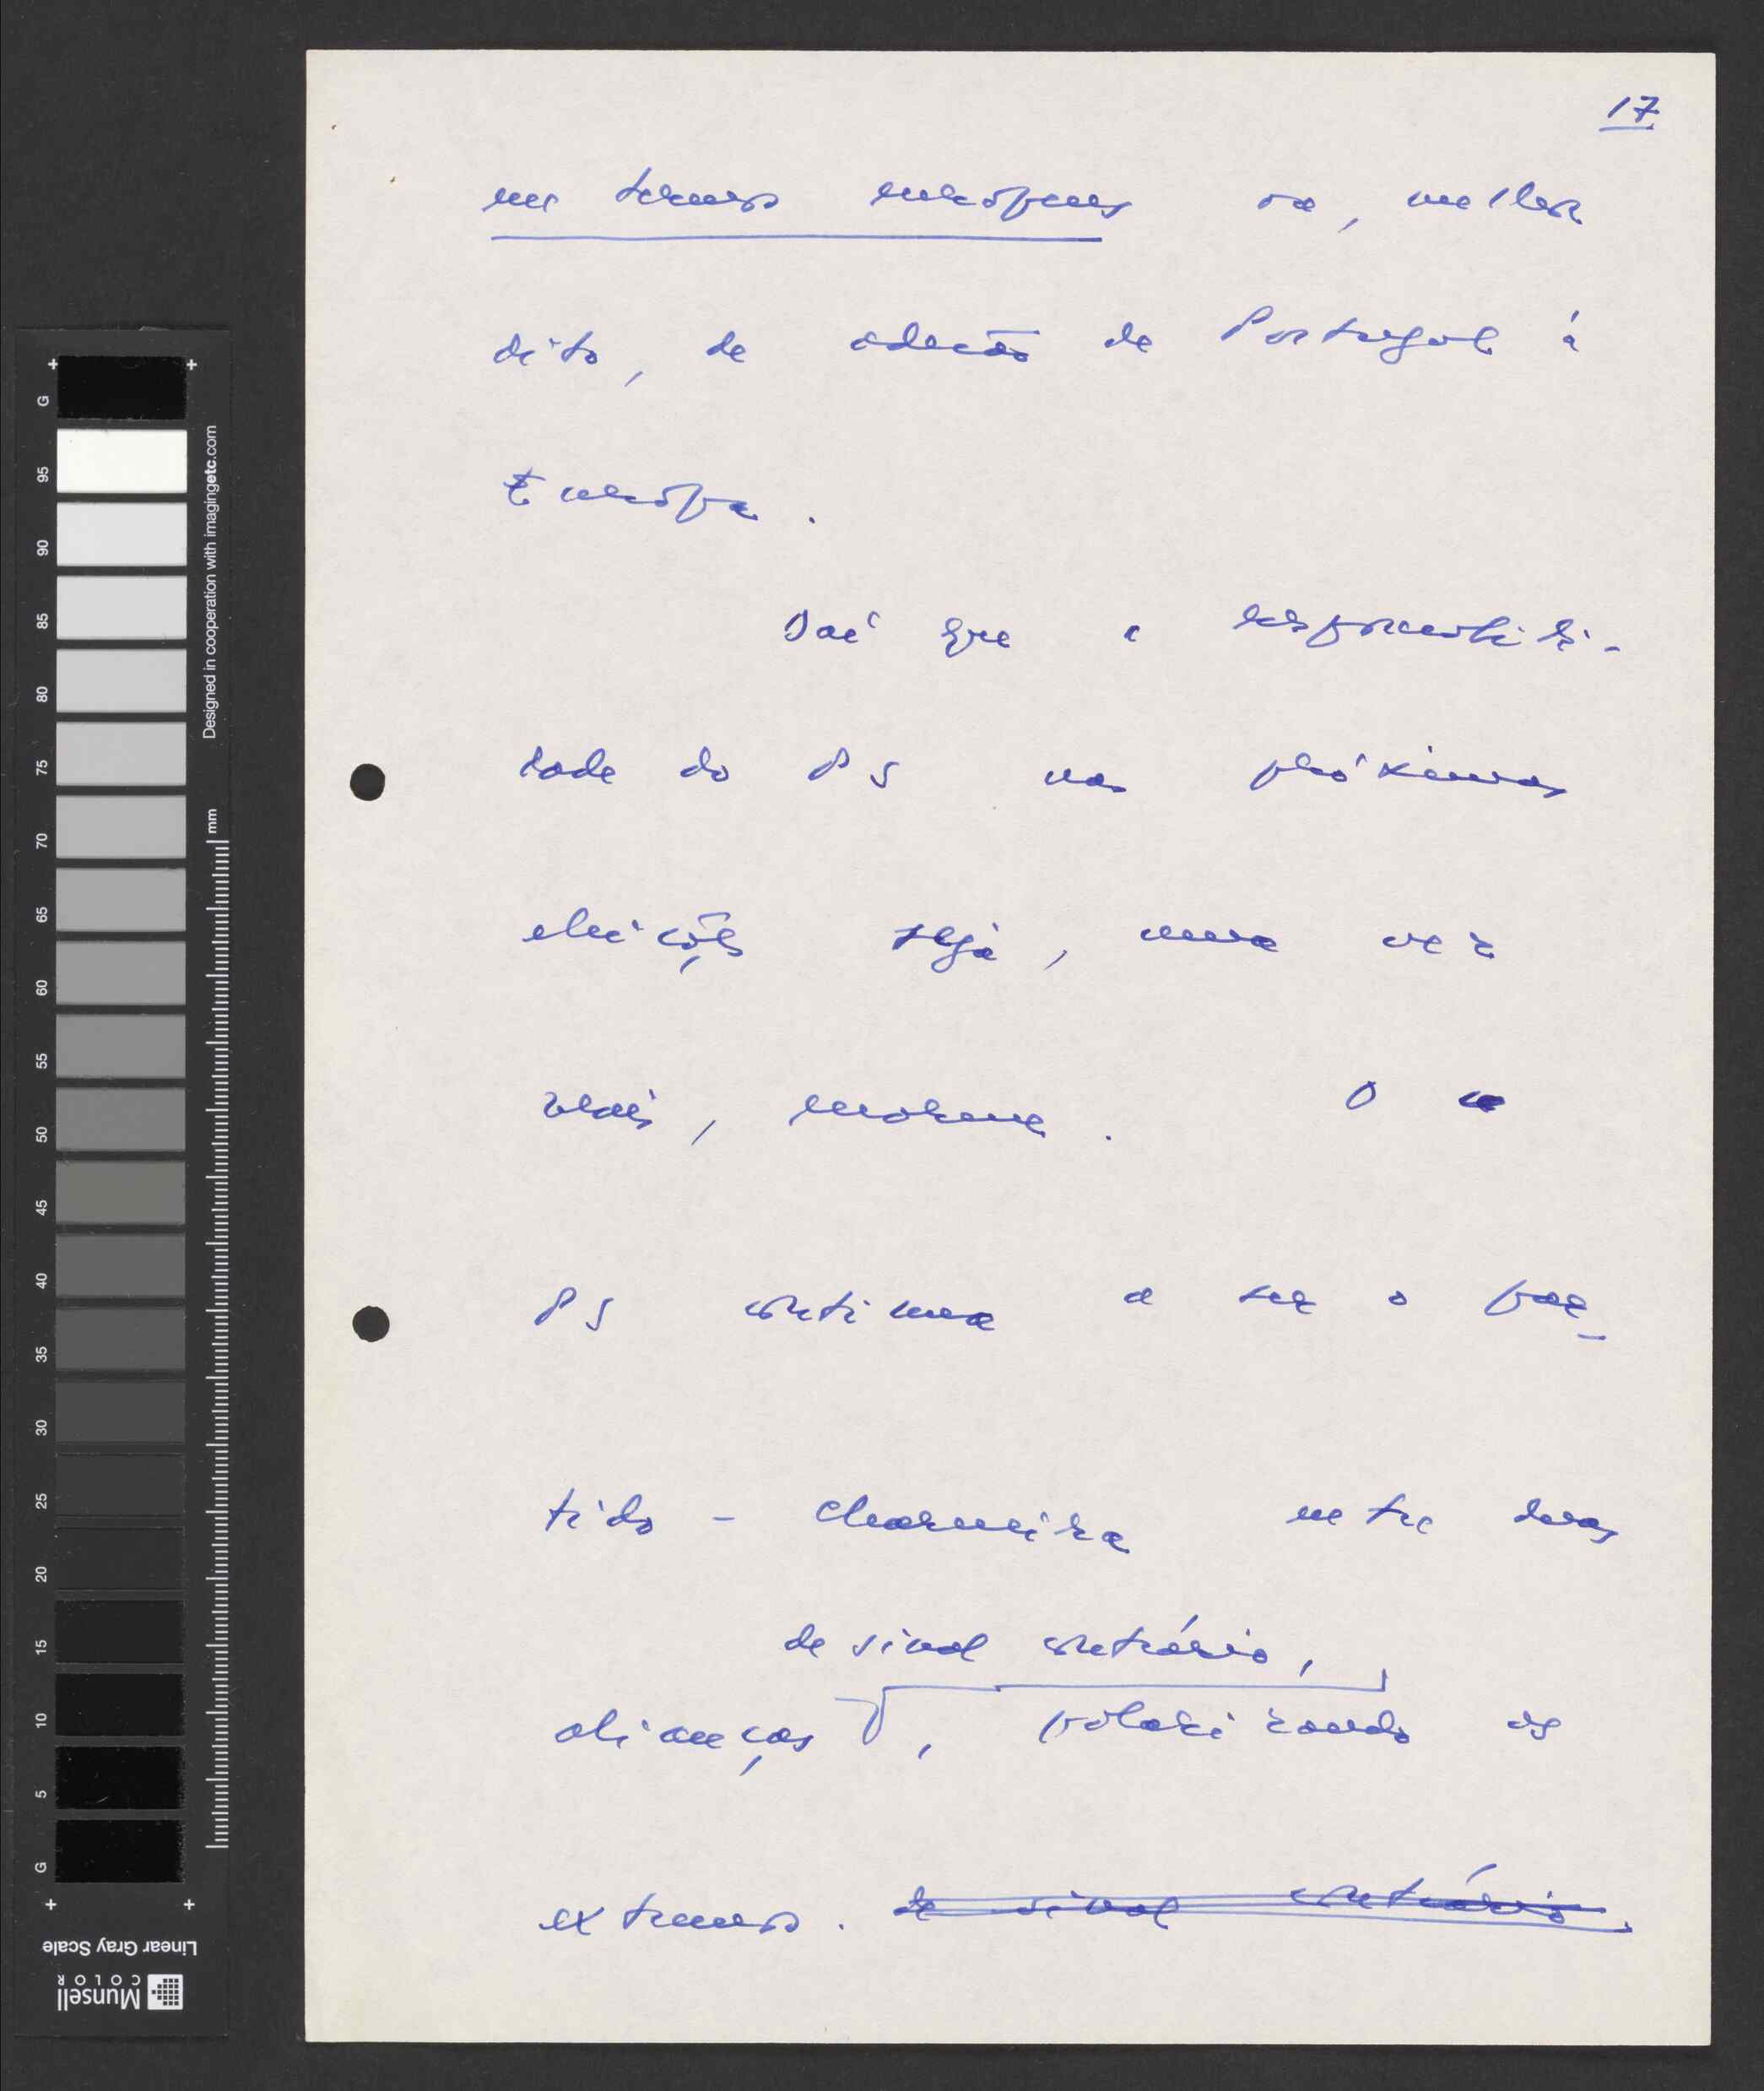 17
em termos europeus ou, melhor
dito, de adesão de Portugal à
Europa.
Daí que a responsabili-
dade do PS nas próximas
eleições seja, uma vez
mais, enorme. O
PS continua a ser o par-
tido - charneira entre duas
de sinal contrário,
alianças, polarizando os
extremos. de sinal contrário.
G 95 90 85 80 75 70 65 60 55 50 45 40 35 30 25 20 15 10 5 G
Designed in cooperation with imagingetc.com
mm
Linear Gray Scale
Munsell
COLOR